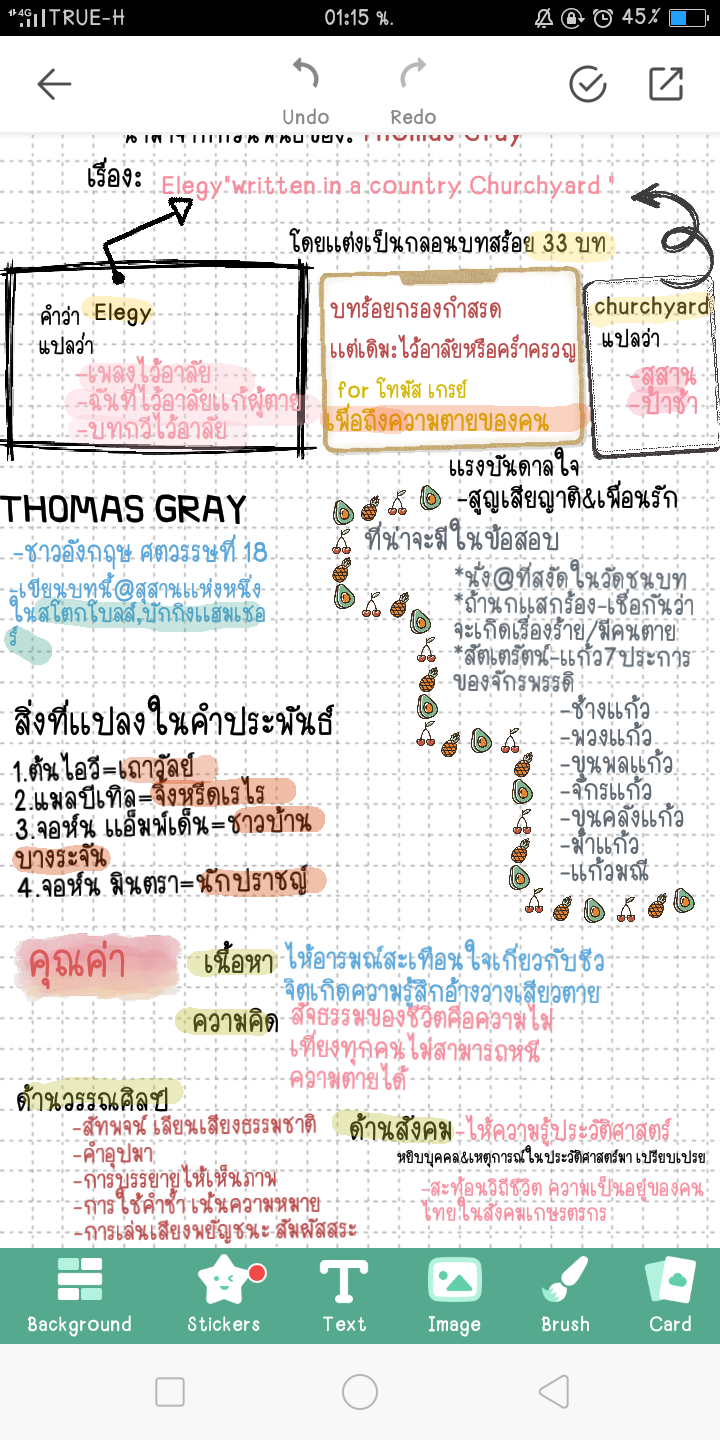 4G TRUE-H 01:15 น. 45%
Undo Redo
Thomas Gray
เรื่อง: Elegy"written in a country Churchyard "
โดยแต่งเป็นกลอนบทสร้อย 33 บท
คำว่า Elegy
แปลว่า
-เพลงไว้อาลัย
-ฉันท์ไว้อาลัยแก้ผู้ตาย
-บทกวีไว้อาลัย
บทร้อยกรองกำสรด
แต่เดิมะไว้อาลัยหรือคร่ำครวญ
for โทมัส เกรย์
เพื่อถึงความตายของคน
churchyard
แปลว่า
-สุสาน
-ป่าช้า
แรงบันดาลใจ
-สูญเสียญาติ&เพื่อนรัก
THOMAS GRAY
-ชาวอังกฤษ ศตวรรษที่ 18
-เขียนบทนี้@สุสานแห่งหนึ่ง
ในสโตกโบลส์,บักกิงแฮมเชอ
ร์
ที่น่าจะมีในข้อสอบ
*นั่ง@ที่สงัดในวัดชนบท
*ถ้านกแสกร้อง-เชื่อกันว่า
จะเกิดเรื่องร้าย/มีคนตาย
*สัตเตรัตน์-แก้ว7ประการ
ของจักรพรรดิ
-ช้างแก้ว
-พวงแก้ว
-ขุนพลแก้ว
-จักรแก้ว
-ขุนคลังแก้ว
-ม้าแก้ว
-แก้วมณี
สิ่งที่แปลงในคำประพันธ์
1.ต้นไอวี=เถาวัลย์
2.แมลบีเทิล=จิ้งหรีดเรไร
3.จอห์น แอ็มพ์เด็น=ชาวบ้าน
บางระจัน
4.จอห์น มินตรา=นักปราชญ์
คุณค่า
เนื้อหา ไห้อารมณ์สะเทือนใจเกี่ยวกับชีว
จิตเกิดความรู้สึกอ้างวางเสียวตาย
ความคิด สัจธรรมของชีวิตคือความไม่
เที่ยงทุกคนไม่สามารถหนี
ความตายได้
ด้านวรรณศิลป์
-สัทพจน์ เลียนเสียงธรรมชาติ
-คำอุปมา
-การบรรยายไห้เห็นภาพ
-การใช้คำซ้ำ เน้นความหมาย
-การเล่นเสียงพยัญชนะ สัมผัสสระ
ด้านสังคม -ไห้ความรู้ประวัติศาสตร์
หยิบบุคคล&เหตุการณ์ในประวัติศาสตร์มา เปรียบเปรย
-สะท้อนวิถีชีวิต ความเป็นอยู่ของคน
ไทยในสังคมเกษตรกร
Background Stickers Text Image Brush Card